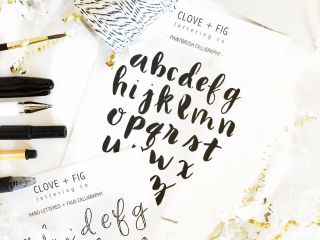 CLOVE + FIG
lettering co
- PAINTBRUSH CALLIGRAPHY -
abcdefg
hijklmn
opqrst
uvwx
yz
CLOVE + FIG
lettering co
HAND LETTERED + FAUX CALLIGRAPHY
defg